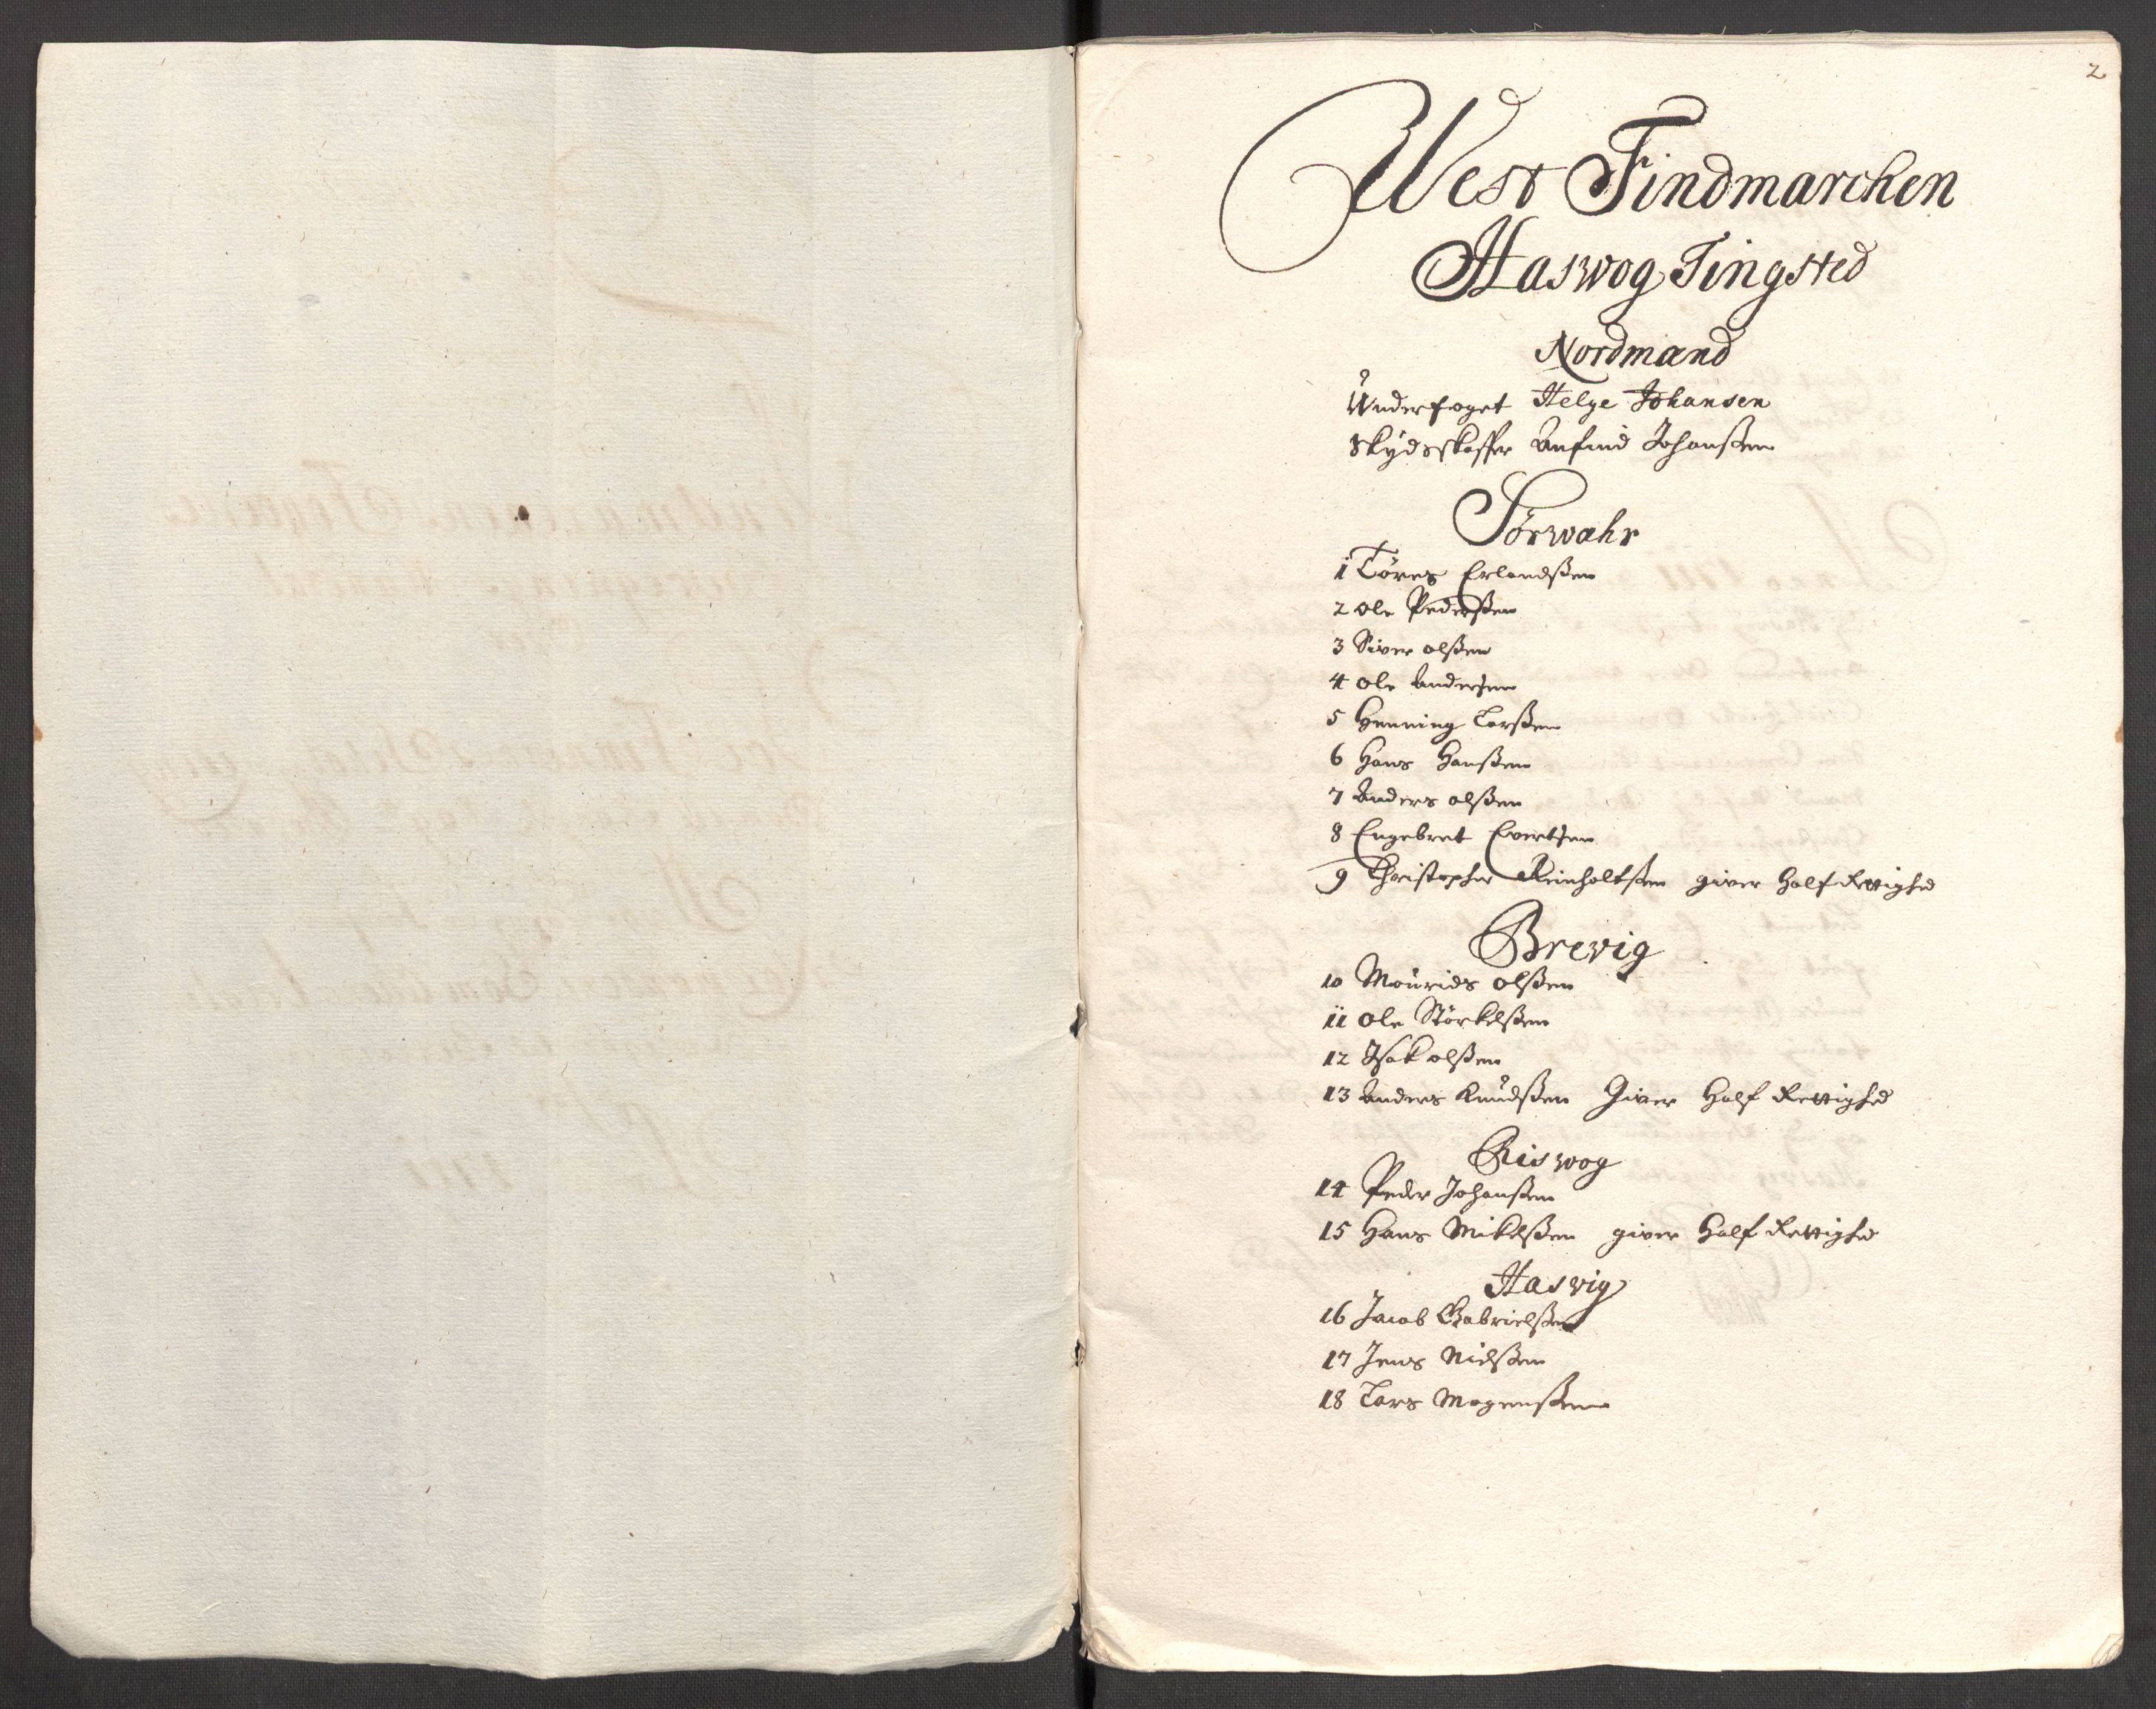 2
West Findmarcken
Haswog Tingsted
Nordmænd
Underfoget Helge Johansen
Skydsskaffer Anfind Johanßen
Sørwahr
1 Töres Erlandßen
2 Ole Pederßen
3 Siver olßen
4 Ole Andersen
5 Henning Larßen
6 Hans Hanßen
7 Anders olßen
8 Engebret Evertsen
9 Christopher Reinholtßen giver Half Rettighed
Brevig
10 Mourids Olßen
11 Ole Störkelßen
12 Isak olßen
13 Anders Knudßen Giver Half Rettighed
Riswog
14 Peder Johanßen
15 Hans Mikelßen giver Half Rettighed
Hasvig
16 Jacob Gabrielßen
17 Jens Nielßen
18 Lars Mogenßen